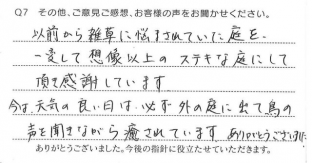 Q7 その他、ご意見ご感想、お客様の声をお聞かせください。
以前から雑草に悩まされていた庭を
一変して想像以上のステキな庭にして
頂き感謝しています
今は、天気の良い日は必ず外の庭に出て鳥の
声を聞きながら癒されています ありがとうございました
ありがとうございました。今後の指針に役立たせていただきます。